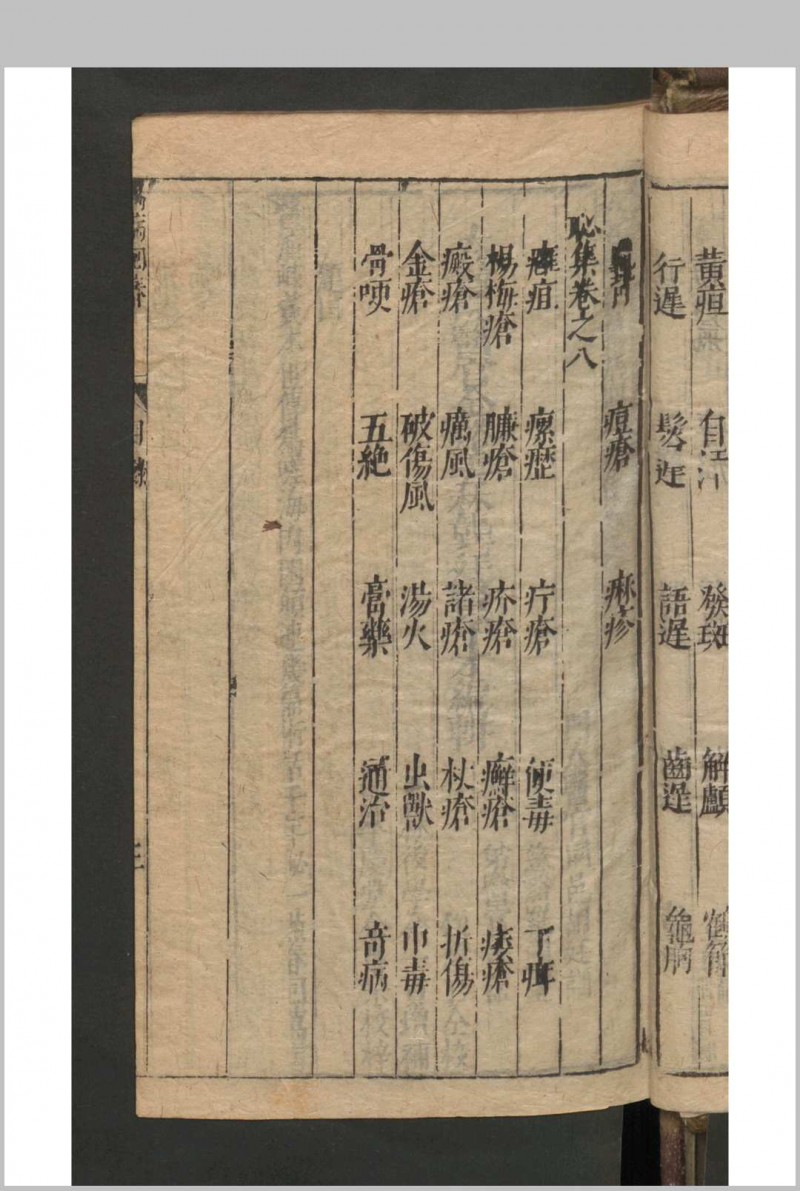 黄疸 自汗 發斑 解顱 鶴節
行遲 髮遲 語遲 齒遲 龜胸
痘瘡 麻疹
恥集卷之八
癰疽 瘰癧 疔瘡 便毒 下疳
楊梅瘡 臁瘡 疥瘡 癬瘡 痰瘡
癜瘡 癘風 諸瘡 杖瘡 折傷
金瘡 破傷風 湯火 虫獸 中毒
骨哽 五絶 膏藥 通治 奇病
萬病回春 目錄 三